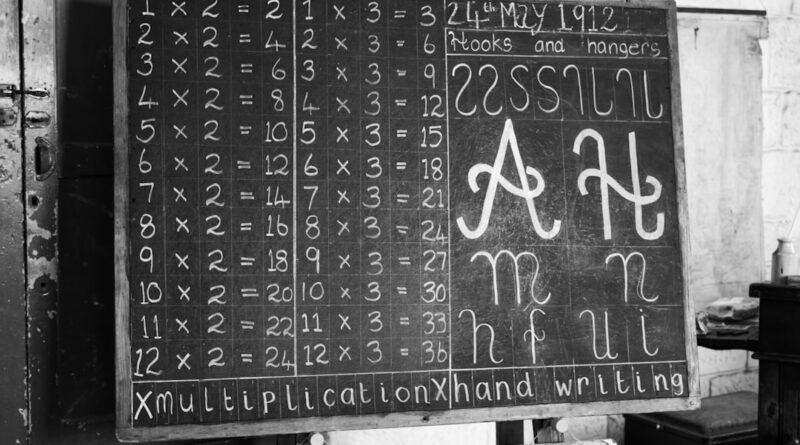 1 × 2 = 2
2 × 2 = 4
3 × 2 = 6
4 × 2 = 8
5 × 2 = 10
6 × 2 = 12
7 × 2 = 14
8 × 2 = 16
9 × 2 = 18
10 × 2 = 20
11 × 2 = 22
12 × 2 = 24
1 × 3 = 3
2 × 3 = 6
3 × 3 = 9
4 × 3 = 12
5 × 3 = 15
6 × 3 = 18
7 × 3 = 21
8 × 3 = 24
9 × 3 = 27
10 × 3 = 30
11 × 3 = 33
12 × 3 = 36
X multiplication X
24th MAY 1912
Hooks and hangers
A H
m n
h f u i
hand writing